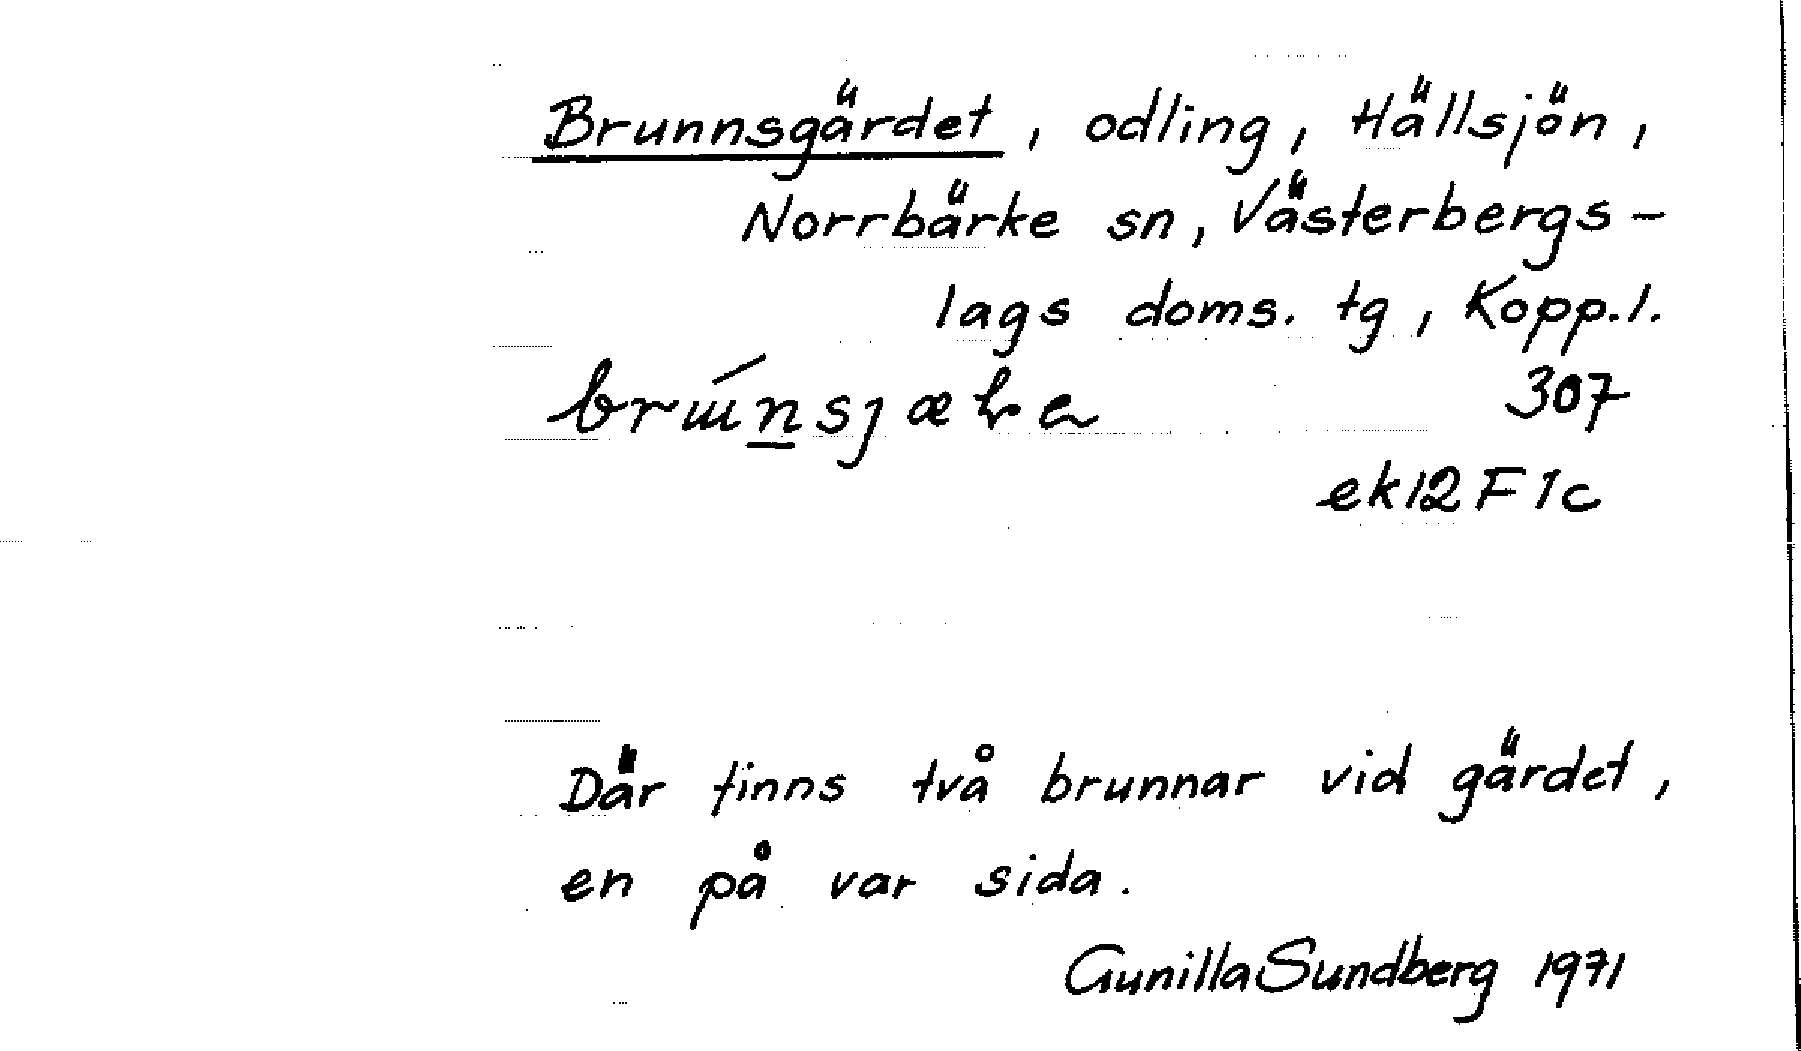 Brunnsgärdet, odling, Hällsjön,
Norrbärke sn, Västerbergs-
lags doms. tg, Kopp.l.
307
ek 12 F 1c
Där finns två brunnar vid gärdet,
en på var sida.
Gunilla Sundberg 1971